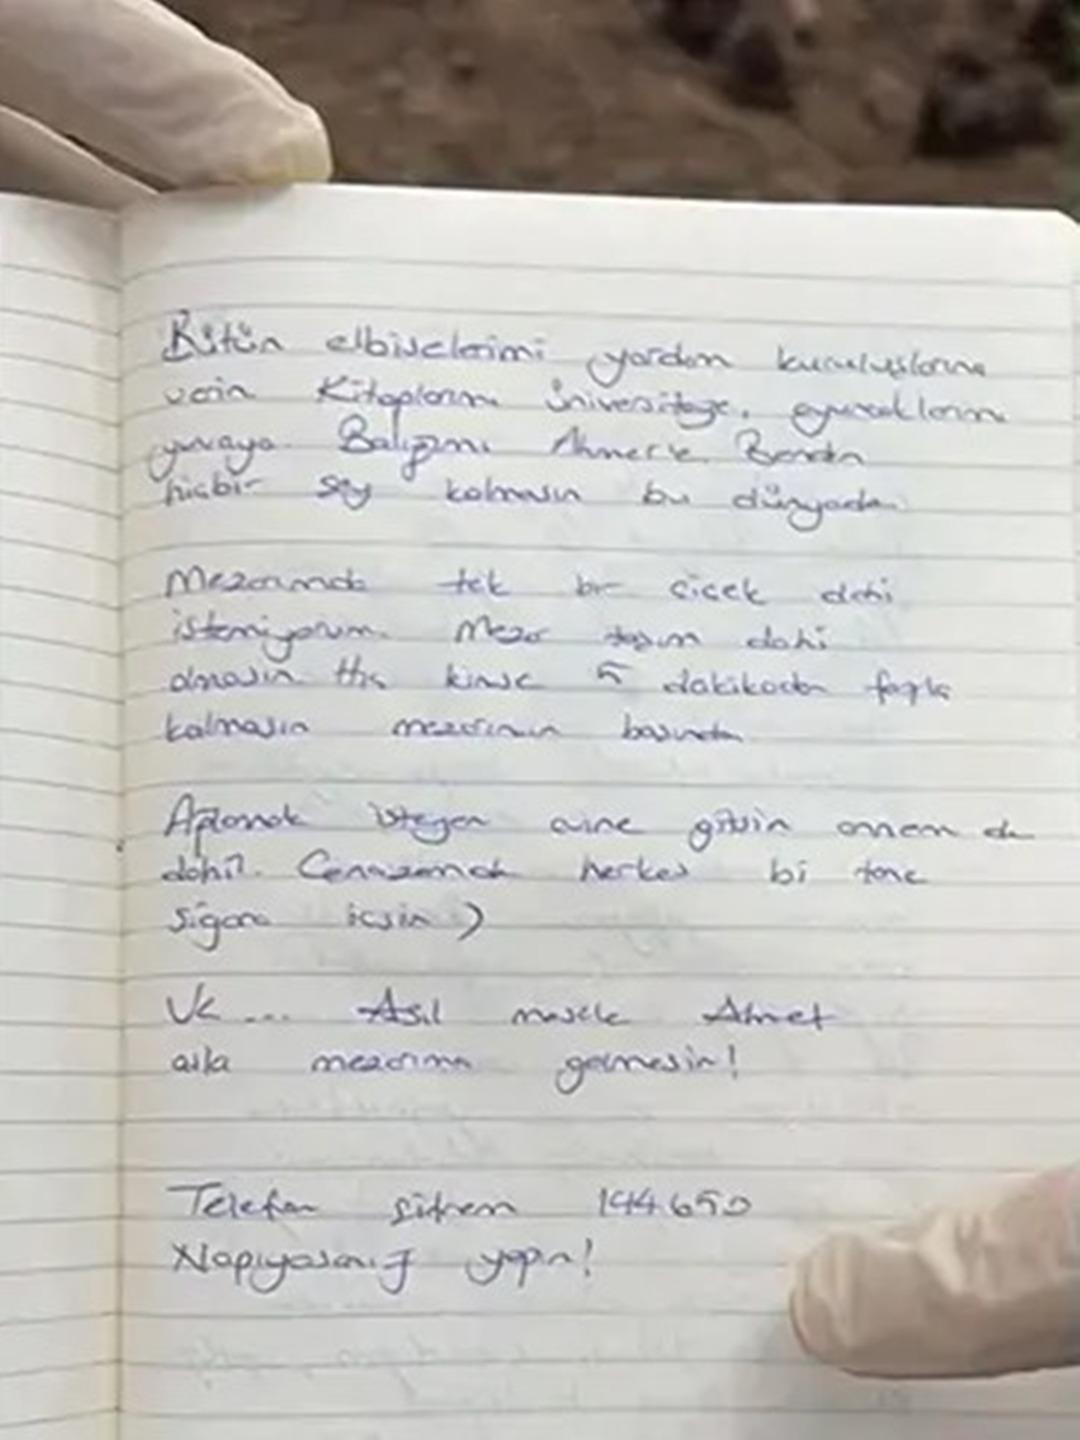 Bütün elbiselerimi yardım kuruluşlarına
verin Kitaplarımı üniversiteye, oyuncaklarımı
yuvaya. Balığımı Ahmet'e. Benden
hiçbir şey kalmasın bu dünyada.
Mezarımda tek bir çiçek dahi
istemiyorum. Mezar taşım dahi
olmasın. Hiç kimse 5 dakikadan fazla
kalmasın mezarımın başında
Ağlamak isteyen evine gitsin annem de
dahil. Cenazemde herkes bi tane
sigara içsin )
Ve ... Asıl mesele Ahmet
asla mezarıma gelmesin!
Telefon şifrem 144650
Napıyosanız yapın!